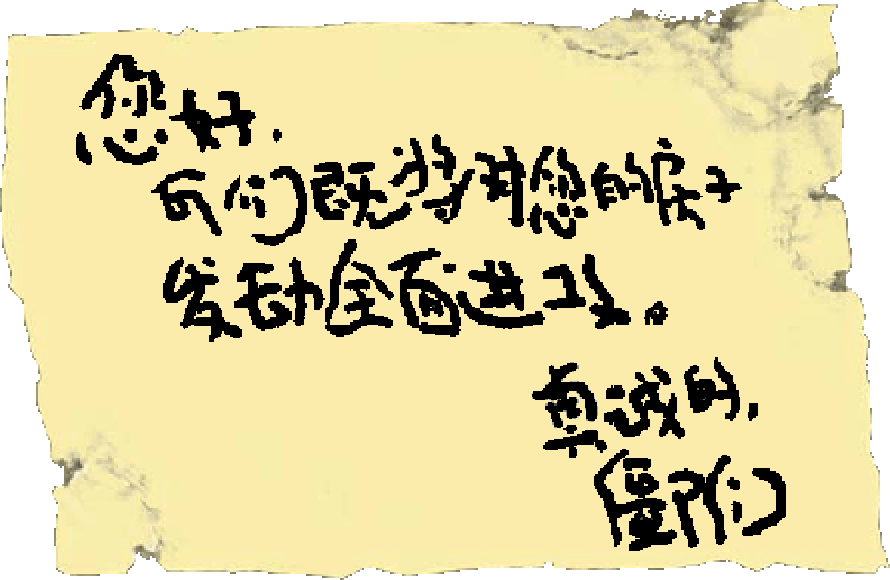 您好,
我们既将对您的房子
发动全面进攻。
真诚的,
僵尸们